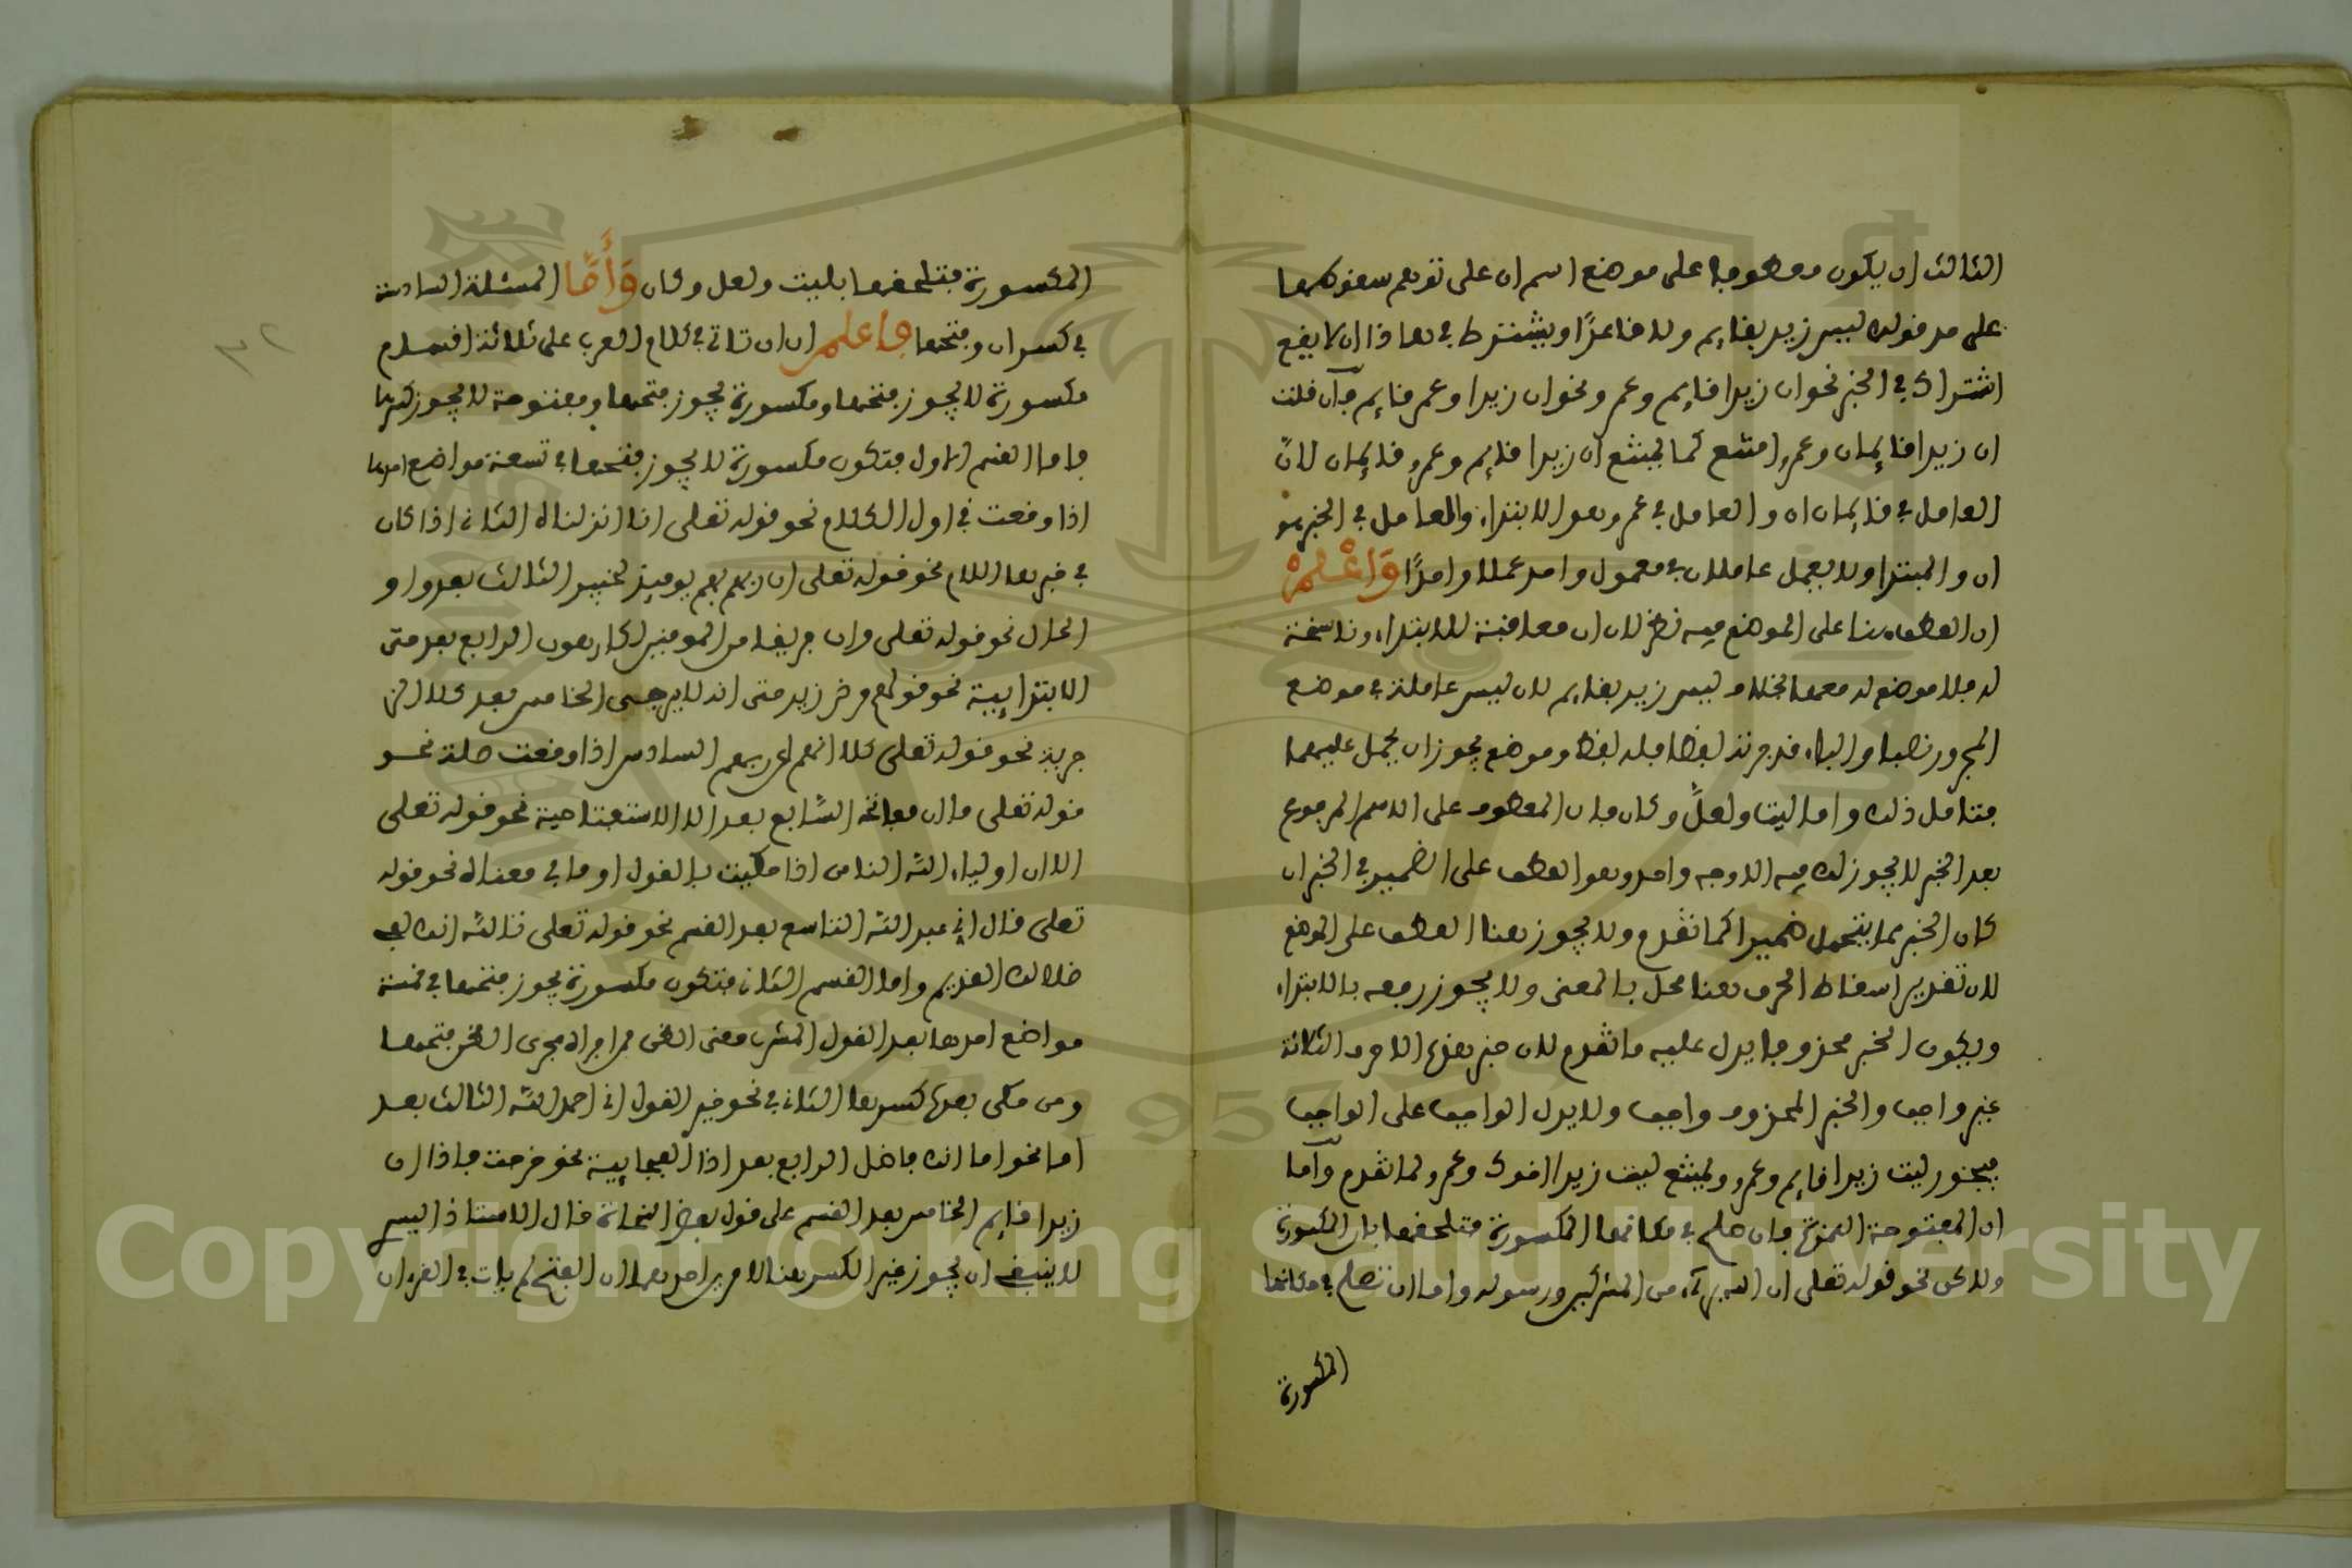 الثالث ان يكون معطوفا على موضع اسم ان على توهم سقوطها
على حد قولك ليس زيد بقايم ولا قاعدًا ويشترط في هاذا ان لا يقع
اشتراك في الخبر نحو ان زيدا قايم وعمر ونحو ان زيدا وعمر قايم فان قلت
ان زيدا قايمان وعمرو امتنع كما يمتنع ان زيدا قايم وعمرو قايمان لانّ
العامل في قايمان ان والعامل في عمرو هو الابتداء والعامل في الخبر هو
ان والمبتدا ولا يعمل عاملان في معمول واحد عملا واحدًا وَاعْلَمْ
ان العطف هنا على الموضع فيه نظر لان ان معاقبة للابتداء وناسخة
له فلا موضع له معها بخلاف ليس زيد بقايم لان ليس عاملة في موضع
المجرور نصبا والباء قد جرته لفظا فله لفظ وموضع يجوز ان يحمل عليهما
فتامل ذلك واما ليت ولعلّ وكان فان المعطوف على الاسم المرفوع
بعد الخبر لا يجوز لك فيه الا وجه واحد وهو العطف على الضمير في الخبر ان
كان الخبر مما يتحمل ضميرا كما تقدم ولا يجوز هنا العطف على الموضع
لان تقدير اسقاط الحرف هنا مخل بالمعنى ولا يجوز رفعه بالابتداء
ويكون الخبر محذوفا يدل عليه ما تقدم لان خبر هذه الاحرف الثلاثة
غير واجب والخبر المحذوف واجب ولا يدل الواجب على الواجب
فيجوز ليت زيدا قايم وعمرو ويمتنع ليت زيدا اخوك وعمرو لما تقدم وأما
ان المفتوحة الهمزة فان صلح في مكانها المكسورة فتلحقها بان المكسورة
ولاكن نحو قوله تعلى ان الله برئ من المشركين ورسوله واما ان تصلح في مكانها
المكسورة
المكسورة فتلحقها بليت ولعل وكان وَأَمَّا المسئلة السادسة
في كسر ان وفتحها فاعلم ان ان تاتي في كلام العرب على ثلاثة اقسام
مكسورة لا يجوز فتحها ومكسورة يجوز فتحها ومفتوحة لا يجوز كسرها
فاما القسم الاول فتكون مكسورة لا يجوز فتحها في تسعة مواضع احدها
اذا وقعت في اول الكلام نحو قوله تعلى انا انزلناه الثاني اذا كان
في خبرها اللام نحو قوله تعلى ان ربهم بهم يوميذ لخبير الثالث بعد واو
الحال نحو قوله تعلى وان فريقا من المومنين لكارهون الرابع بعد حتى
الابتدايية نحو قولهم مرض زيد حتى انه لا يرجى الخامس بعد كلا
نحو قوله تعلى كلا انهم عن ربهم السادس اذا وقعت صلة نحو
قوله تعلى ما ان مفاتحه السّابع بعد الا الاستفتاحية نحو قوله تعلى
الا ان اولياء الله الثامن اذا حكيت بالقول او ما في معناه نحو قوله
تعلى قال اني عبد الله التاسع بعد القسم نحو قوله تعلى تالله انك لفي
ضلالك القديم واما القسم الثاني فتكون مكسورة يجوز فتحها في خمسة
مواضع احدها بعد القول المشرب معنى الظن فمن اجراه مجرى الظن فتحها
ومن حكى بعده كسرها الثاني في نحو خير القول اني احمد الله الثالث بعد
اما نحو اما انك فاضل الرابع بعد اذا الفجايية نحو خرجت فاذا ان
زيدا قايم الخامس بعد القسم على قول بعض النحاة قال الاستاذ
لا ينبغي ان يجوز غير الكسر هنا لامرين احدهما ان الفتح لم يات في القرءان